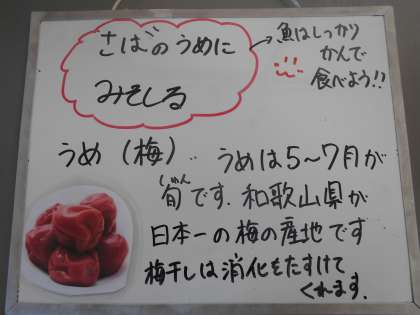 さばのうめに
みそしる
魚はしっかり
かんで
食べよう!!
うめ(梅)‥ うめは5〜7月が
しゅん
旬です. 和歌山県が
日本一の梅の産地です
梅干しは消化をたすけて
くれます.